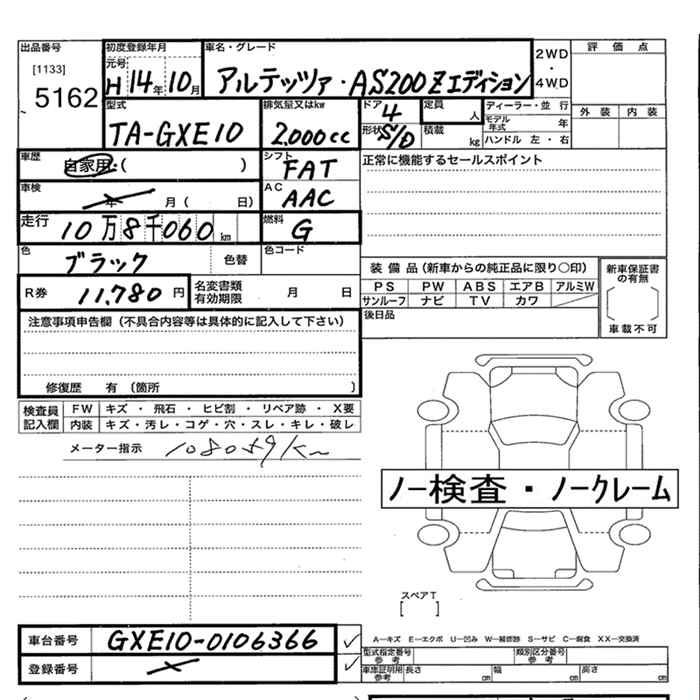 出品番号
[1133]
5162
初度登録年月
元号
H 14 年 10 月
車名・グレード
アルテッツァ・AS200Zエディション
2WD
・
4WD
評価点
外装 内装
型式
TA-GXE10
排気量又はkw
2,000cc
ドア
4
形状
S/D
定員
人
積載
kg
ディーラー・並行
モデル年式 年
ハンドル 左・右
車歴
自家用・( )
シフト
FAT
正常に機能するセールスポイント
車検
年 月 ( 日)
AC
AAC
走行
10万8千060 km
燃料
G
色
ブラック
色替
色コード
R券
11,780 円
名変書類
有効期限
月 日
装備品(新車からの純正品に限り○印)
PS PW ABS エアB アルミW
サンルーフ ナビ TV カワ
新車保証書
の有無
車載不可
後日品
注意事項申告欄(不具合内容等は具体的に記入して下さい)
修復歴 有 (箇所 )
検査員
記入欄
FW キズ・飛石・ヒビ割・リペア跡・X要
内装 キズ・汚レ・コゲ・穴・スレ・キレ・破レ
メーター指示
108059km
ノー検査・ノークレーム
スペアT
[ ]
車台番号
GXE10-0106366
登録番号
A—キズ E—エクボ U—凹み W—補修跡 S—サビ C—腐食 XX—交換済
型式指定番号
参考
類別区分番号
参考
車庫証明用
参考
長さ cm
幅 cm
高さ cm